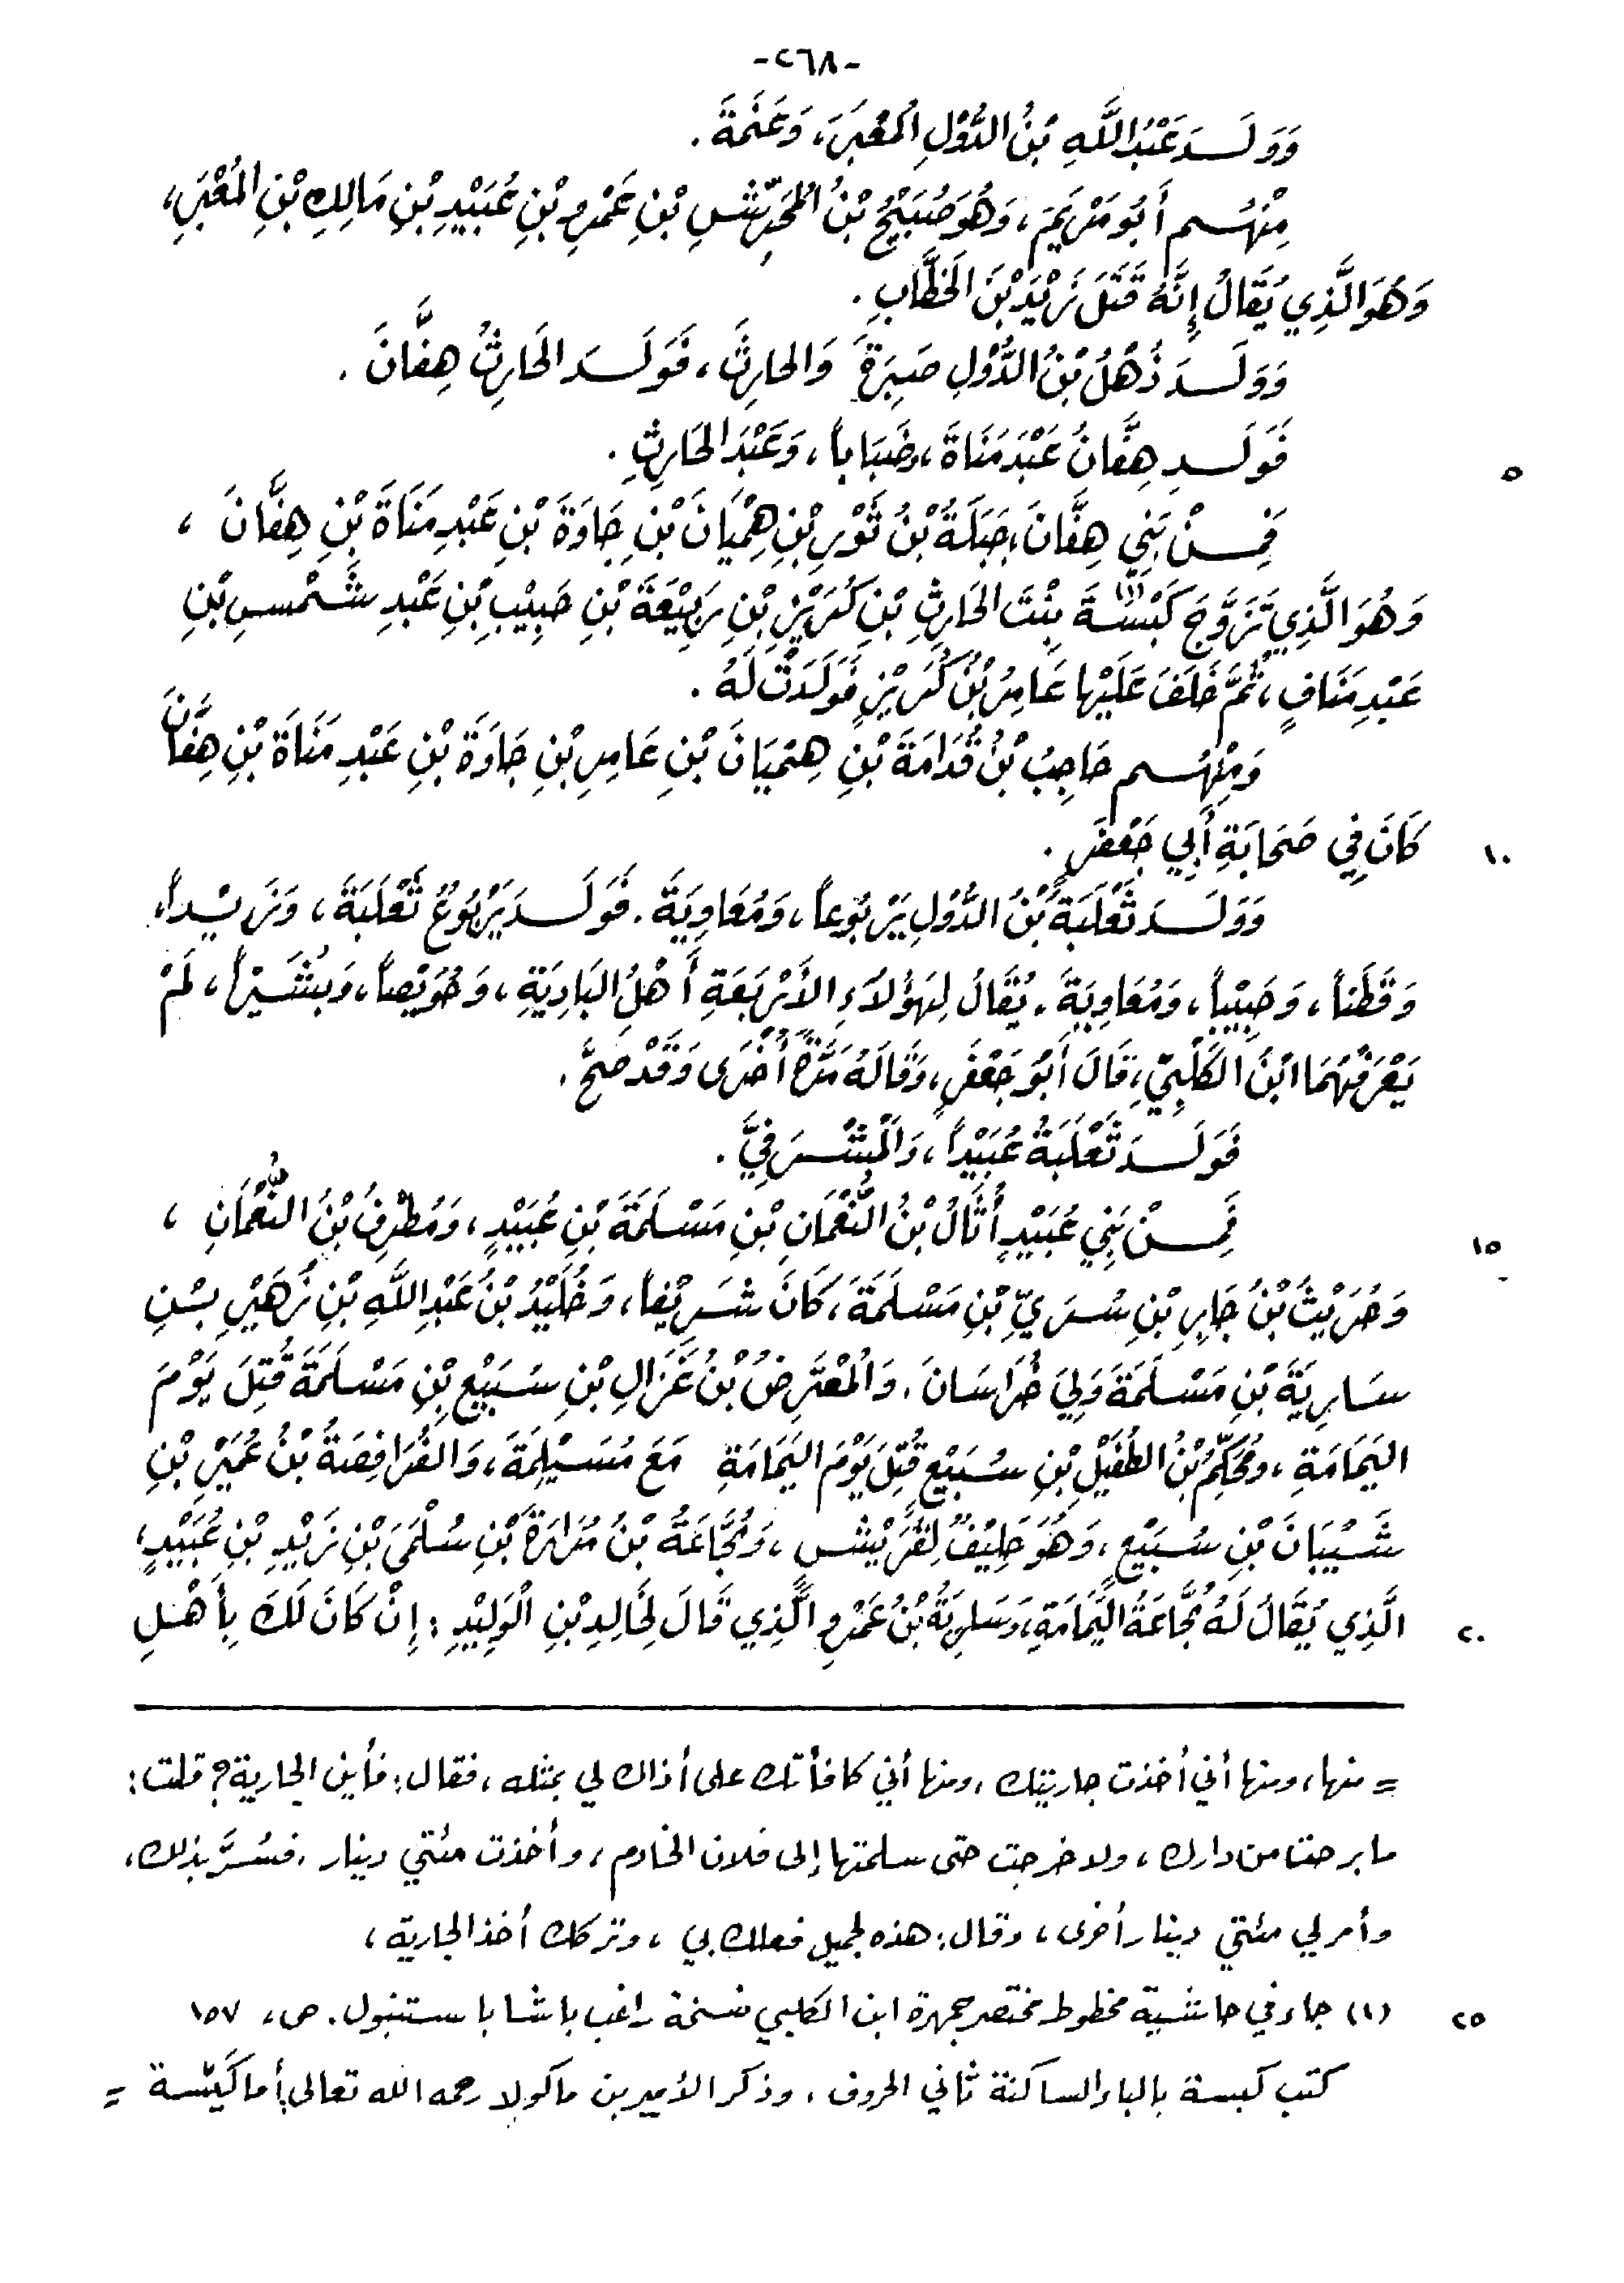 -٢٦٨-
وَوَلَدَ عَبْدُ اللَّهِ بْنُ الدُّوْلِ المُعْبَرَ، وَعَنَمَةَ.
مِنْهُم أَبُو مَرْيَمَ، وَهُوَ صُبَيْحُ بْنُ المُحَرِّشِ بْنِ عَمْرِو بْنِ عُبَيْدِ بْنِ مَالِكِ بْنِ المُعْبَرِ،
وَهُوَ الَّذِي يُقَالُ إِنَّهُ قَتَلَ زَيْدَ بْنَ الخَطَّابِ.
وَوَلَدَ ذُهْلُ بْنُ الدُّوْلِ صَبِرَةَ وَالحَارِثَ، فَوَلَدَ الحَارِثُ هِفَّانَ.
٥ فَوَلَدَ هِفَّانُ عَبْدَ مَنَاةَ، وَضَبَاباً، وَعَبْدَ الحَارِثِ.
فَمِنْ بَنِي هِفَّانَ، جَبَلَةُ بْنُ ثَوْرِ بْنِ هِمْيَانَ بْنِ جَاوَةَ بْنِ عَبْدِ مَنَاةَ بْنِ هِفَّانَ،
وَهُوَ الَّذِي تَزَوَّجَ كَبْسَةَ (١) بِنْتَ الحَارِثِ بْنِ كُرَيْزِ بْنِ رَبِيْعَةَ بْنِ حَبِيْبِ بْنِ عَبْدِ شَمْسِ بْنِ
عَبْدِ مَنَافٍ، ثُمَّ خَلَفَ عَلَيْها عَامِرُ بْنُ كُرَيْزٍ فَوَلَدَتْ لَهُ.
وَمِنْهُم حَاجِبُ بْنُ قُدَامَةَ بْنِ هِمْيَانَ بْنِ عَامِرِ بْنِ جَاوَةَ بْنِ عَبْدِ مَنَاةَ بْنِ هِفَّانَ
١٠ كَانَ فِي صَحَابَةِ أَبِي جَعْفَرٍ.
وَوَلَدَ ثَعْلَبَةُ بْنُ الدُّوْلِ يَرْبُوعاً، وَمُعَاوِيَةَ. فَوَلَدَ يَرْبُوعٌ ثَعْلَبَةَ، وَزَيْداً،
وَقَطَناً، وَحَبِيْباً، وَمُعَاوِيَةَ. يُقَالُ لِهَؤُلاَءِ الأَرْبَعَةِ أَهْلُ البَادِيَةِ، وَحُوَيْصاً، وَبُشَيْراً، لَمْ
يَعْرِفْهُمَا ابْنُ الكَلْبِيِّ، قَالَ أَبُو جَعْفَرٍ، وَقَالَهُ مَرَّةً أُخْرَى وَقَدْ صَحَّ.
فَوَلَدَ ثَعْلَبَةُ عُبَيْداً، وَالمَشْرَفِيَّ.
١٥ فَمِنْ بَنِي عُبَيْدٍ أُثَالُ بْنُ النُّعْمَانِ بْنِ مَسْلَمَةَ بْنِ عُبَيْدٍ، وَمُطَرِّفُ بْنُ النُّعْمَانِ،
وَحُرَيْثُ بْنُ جَابِرِ بْنِ سُرَيِّ بْنِ مَسْلَمَةَ، كَانَ شَرِيْفاً، وَخُلَيْدُ بْنُ عَبْدِ اللَّهِ بْنِ زُهَيْرِ بْنِ
سَارِيَةَ بْنِ مَسْلَمَةَ وَلِيَ خُرَاسَانَ. وَالمُعْتَرِضُ بْنُ غَزَالِ بْنِ سُبَيْعِ بْنِ مَسْلَمَةَ قُتِلَ يَوْمَ
اليَمَامَةِ، وَمُحَكِّمُ بْنُ الطُفَيْلِ بْنِ سُبَيْعٍ قُتِلَ يَوْمَ اليَمَامَةِ مَعَ مُسَيْلِمَةَ، وَالفُرَافِصَةُ بْنُ عُمَيْرِ بْنِ
شَيْبَانَ بْنِ سُبَيْعٍ، وَهُوَ حَلِيْفٌ لِقُرَيْشٍ، وَمُجَّاعَةُ بْنُ مُرَارَةَ بْنِ سُلْمَى بْنِ زَيْدِ بْنِ عُبَيْدٍ،
٢٠ الَّذِي يُقَالُ لَهُ مُجَّاعَةُ اليَمَامَةِ، وَسَارِيَةُ بْنُ عَمْرٍو الَّذِي قَالَ لِخَالِدِ بْنِ الْوَلِيْدِ: إِنْ كَانَ لَكَ بِأَهْلِ
= منها، ومنها أني أخذت جاريتك، ومنها أني كافأتك على أذاك لي بمثله، فقال: فأين الجارية؟ قلت:
ما برحت من دارك، ولا خرجت حتى سلمتها إلى فلان الخادم، وأخذت مئتي دينار. فسُرَّ بذلك،
وأمر لي مئتي دينار أخرى، وقال: هذه لجميل فعلك بي، وتركك أخذ الجارية،
٢٥ (١) جاء في حاشية مخطوط مختصر جمهرة ابن الكلبي نسخة راغب باشا باستنبول. ص، ١٥٧
كتب كبسة بالباء الساكنة ثاني الحروف. وذكر الأمير بن ماكولا رحمه الله تعالى، أما كَيِّسة =